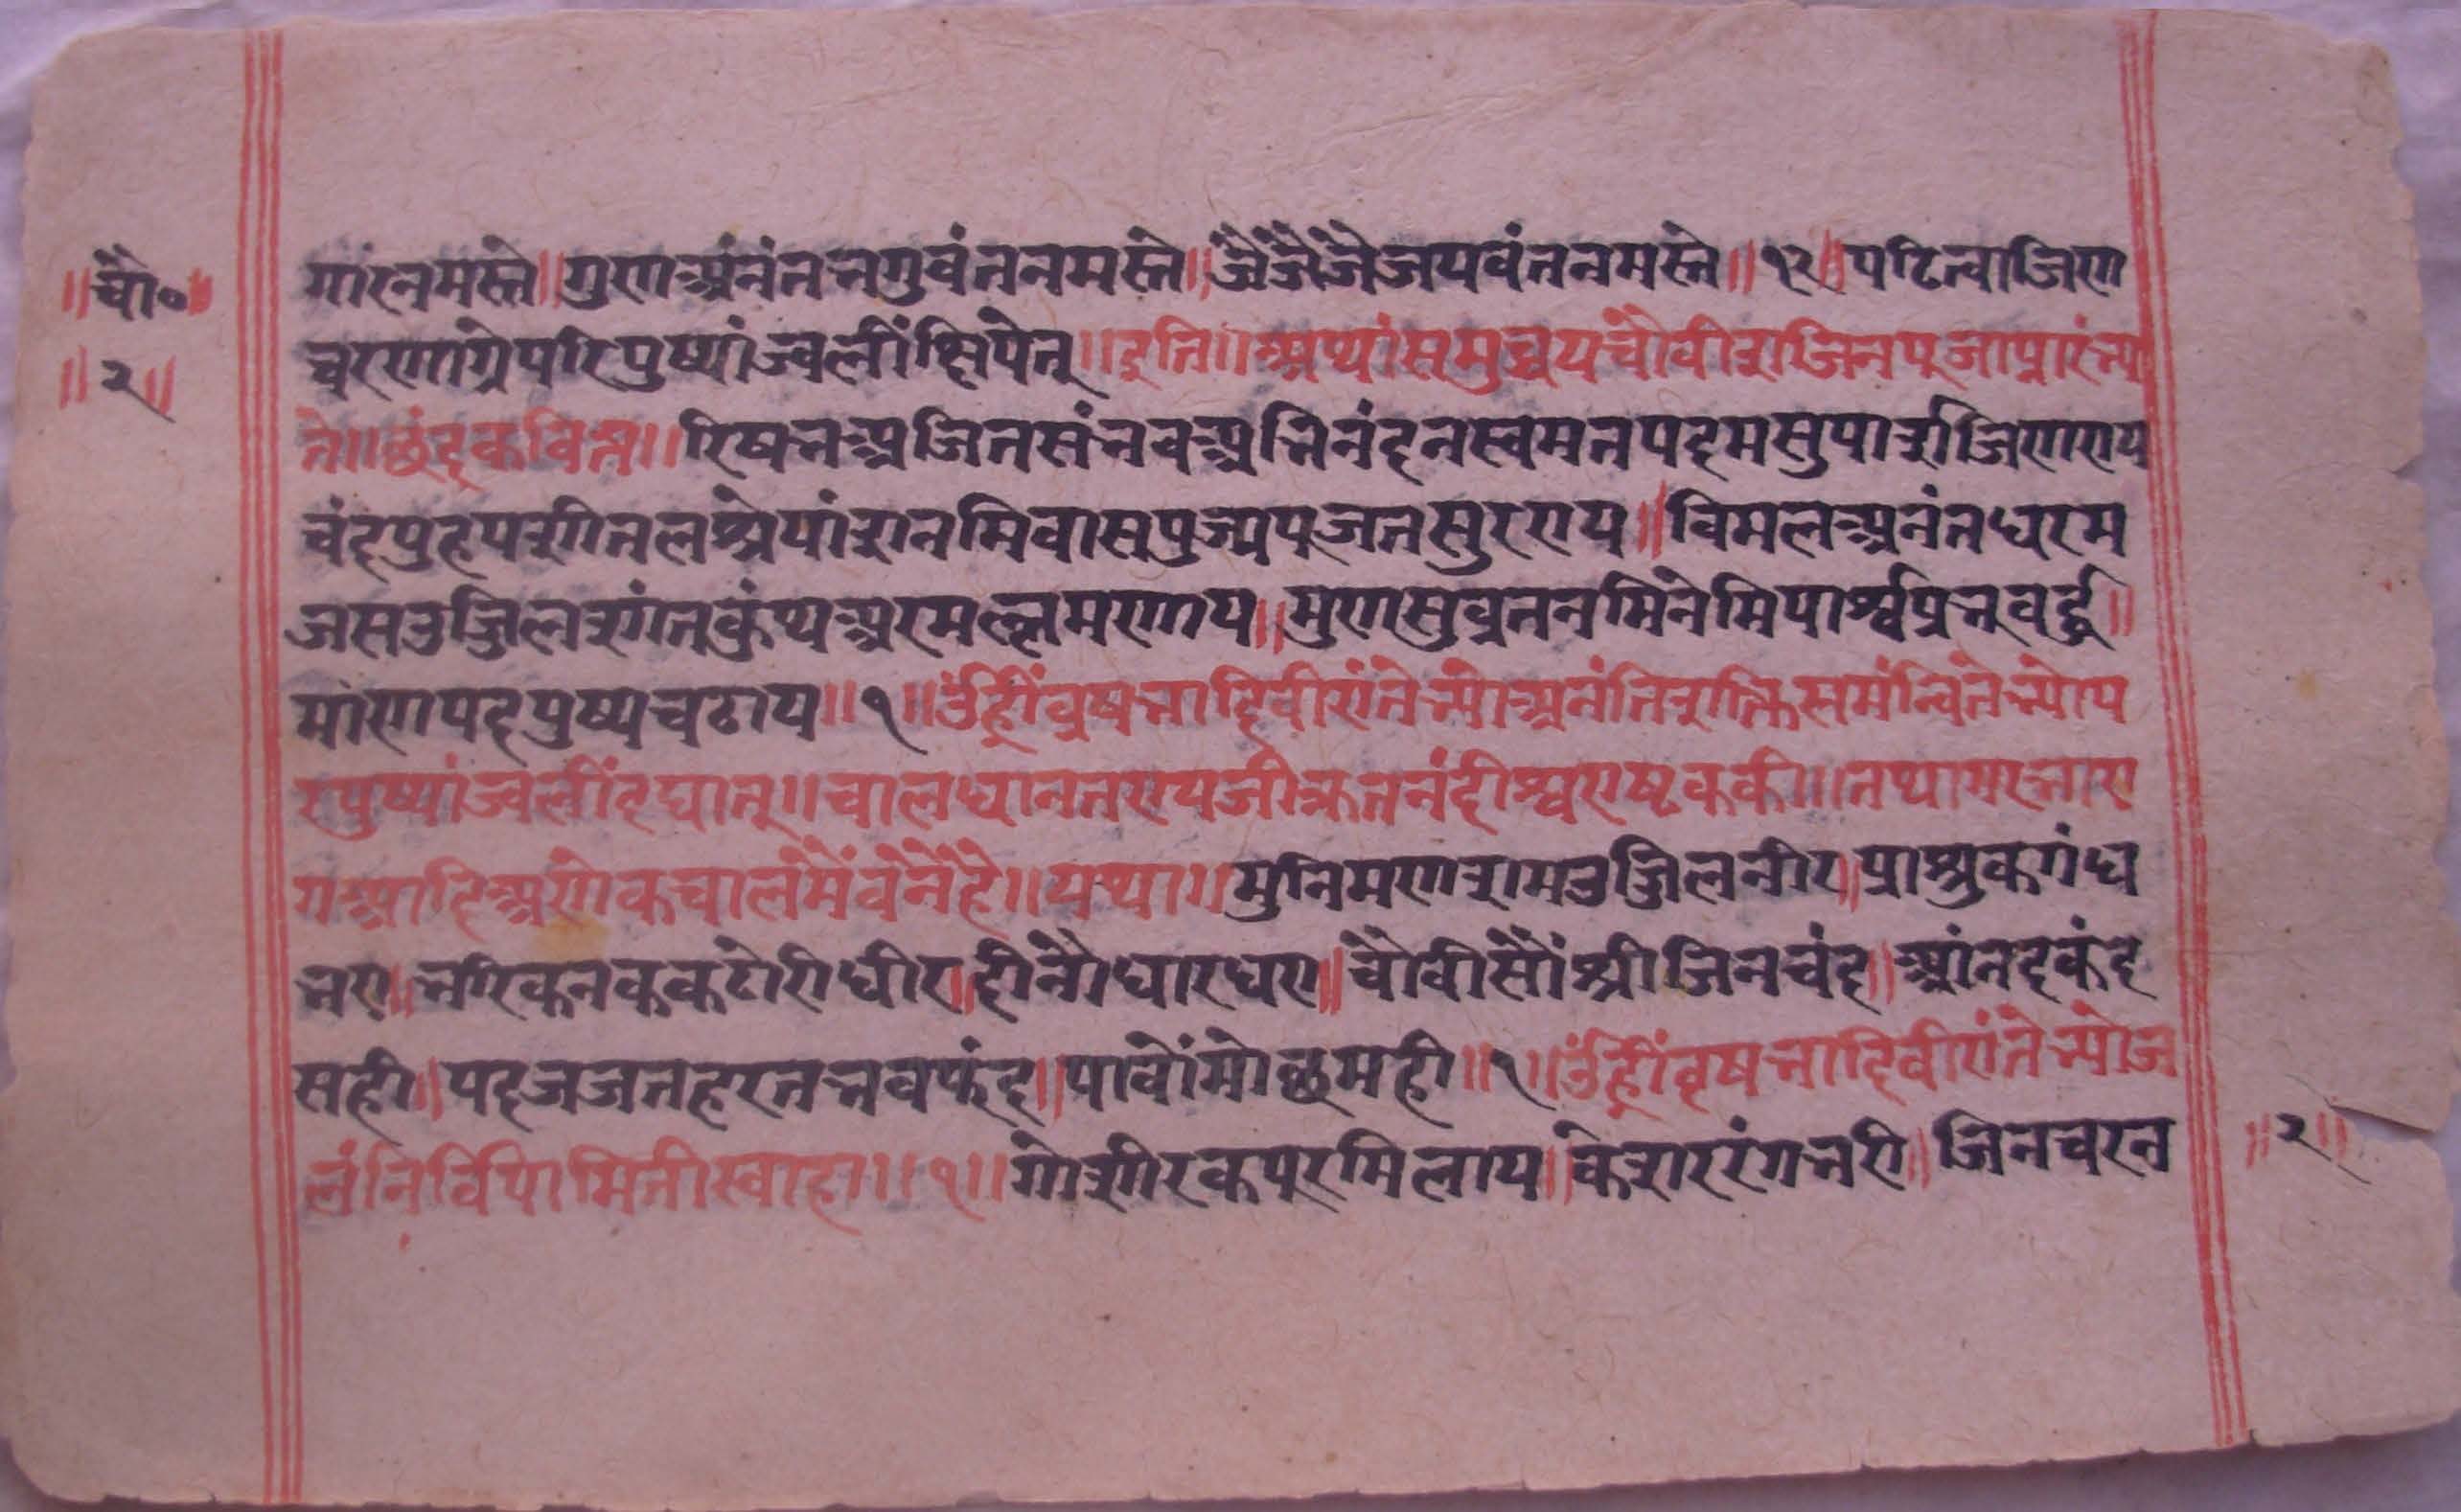 ॥चौ०॥
॥२॥
गारनमस्ते॥गुणअंनंतभगुवंतनमस्ते॥जैजैजैजयवंतनमस्ते॥१२॥पठित्वाजिण
चरणाग्रेपरिपुष्पांज्वलींक्षिपेत्॥इति॥अथांसमुच्चयचौवीशजिनपूजाप्रारंभ्य
ते॥छंदकवित्त॥रिषभअजितसंभवअभिनंदनस्वमतपदमसुपाशजिणराय
चंदपुहपशीतलश्रेयांशनमिवासपुज्यपूजतसुरराय॥विमलअनंतधरम
जसउज्जिलशांतकुंथअरमल्लमणाय॥मुणसुव्रतनमिनेमिपार्श्वप्रभूवर्द्ध॥
माणपदपुष्पचढाय॥१॥उंह्रींवृषभादिवीरांतेभ्योअनंतिशक्तिसमंन्वितेभ्योप
रपुष्पांज्वलींदधात्॥चालधानतरायजीक्रतनंदीश्वराष्टककी॥तथागरभारा
गआदिअशोकचालंमैंवंनैहै॥यथा॥मुनिमणशमउज्जिलनीर॥प्राश्रुकगंध
भरा॥भरिकनककटोरीधीर॥दीनौधारधरा॥चौवीसौंश्रीजिनचंद॥आंनदकंद
सही॥पदजजतहरतभवफंद॥पावौंमोछमही॥१॥उंह्रींवृषभादिवीरांतेभ्योज
लंनिर्विपामितीस्वाहा॥१॥गोशीरकपूरमिलाय॥केशररंगभरी॥जिनचरन
॥२॥